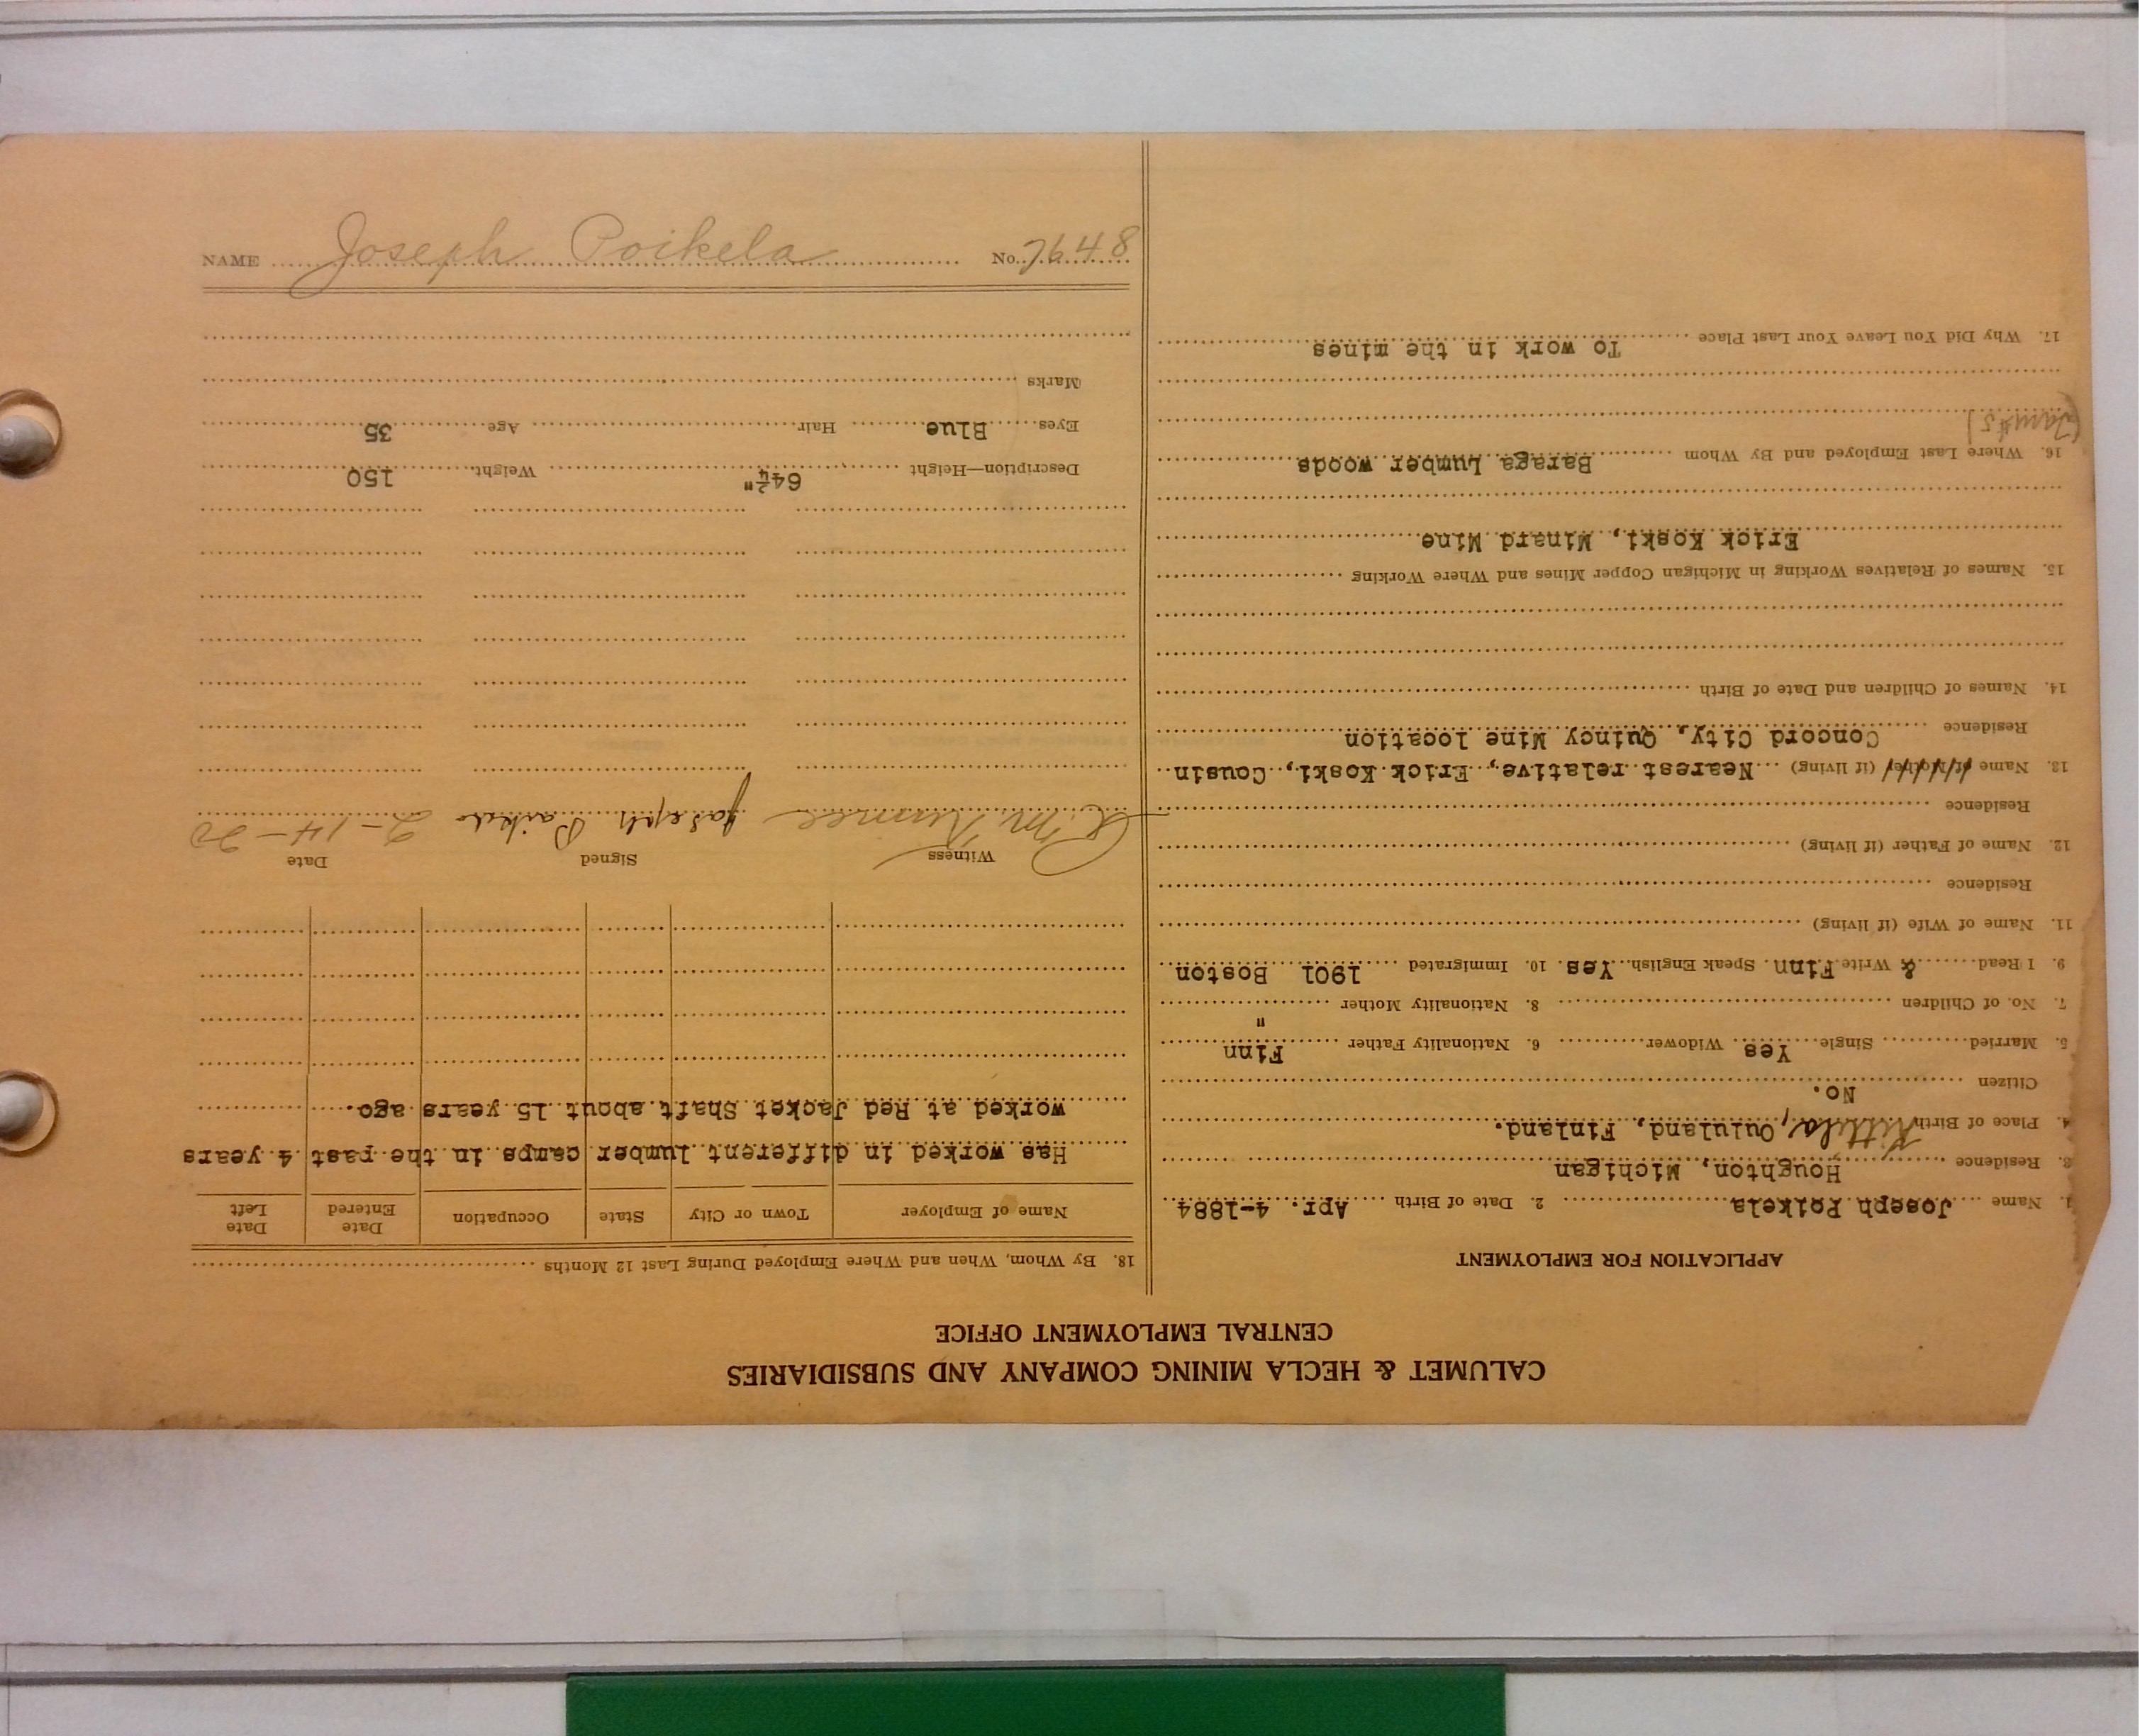 CALUMET & HECLA MINING COMPANY AND SUBSIDIARIES
CENTRAL EMPLOYMENT OFFICE
APPLICATION FOR EMPLOYMENT
1. Name Joseph Poikela 2. Date of Birth Apr. 4-1884
3. Residence Houghton, Michigan
4. Place of Birth Kittila, Oululand, Finland.
Citizen No.
5. Married Single Yes Widower 6. Nationality Father Finn
7. No. of Children 8. Nationality Mother "
9. I Read & Write Finn. Speak English Yes 10. Immigrated 1901 Boston
11. Name of Wife (if living)
Residence
12. Name of Father (if living)
Residence
13. Name of Mother (if living) Nearest relative, Erick Koski, Cousin
Residence Concord City, Quincy Mine location
14. Names of Children and Date of Birth
15. Names of Relatives Working in Michigan Copper Mines and Where Working
Erick Koski, Minard Mine
16. Where Last Employed and By Whom Baraga Lumber woods
17. Why Did You Leave Your Last Place To work in the mines
18. By Whom, When and Where Employed During Last 12 Months
Name of Employer Town or City State Occupation Date Entered Date Left
Has worked in different lumber camps in the past 4 years
worked at Red Jacket Shaft about 15 years ago.
Witness Signed Date
Joseph 2-14-20
Description—Height 64 2/4" Weight 150
Eyes Blue Hair Age 35
Marks
NAME Joseph Poikela No. 7648